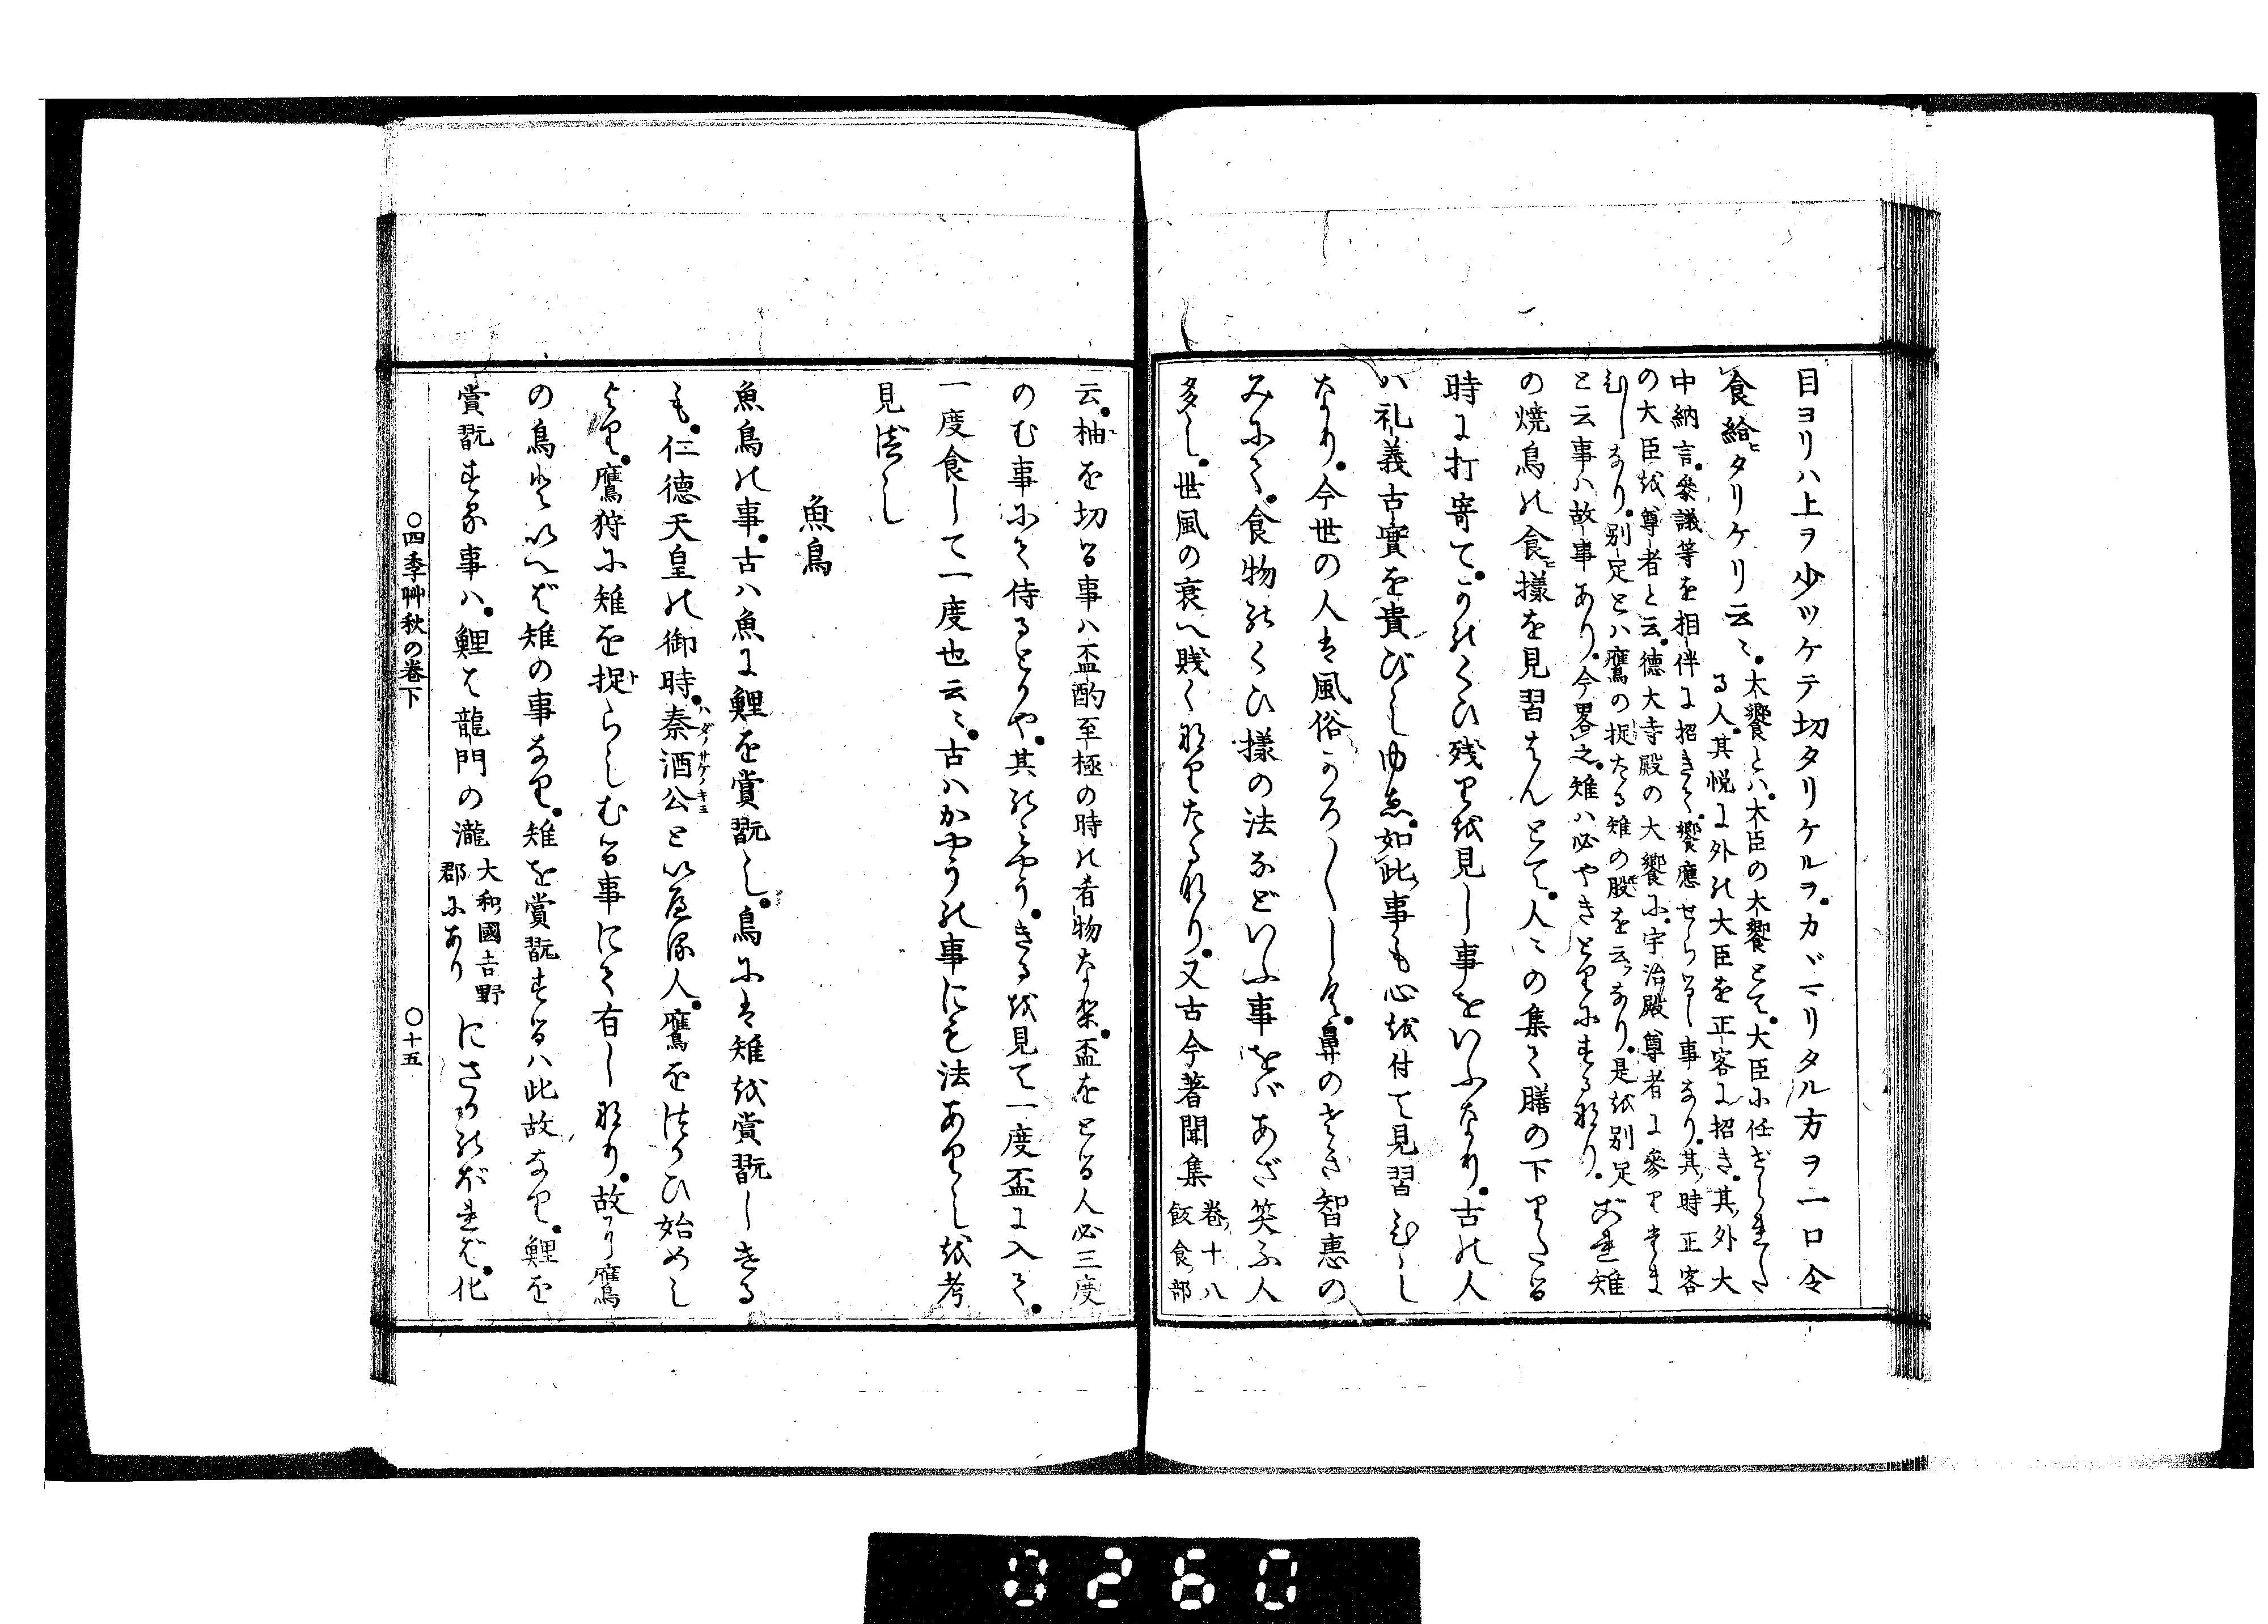 目ヨリハ上ヲ少ツケテ切タリケルヲ。カヾミリタル方ヲ一口令
食給ヒタリケリ云〻。
大饗とハ。大臣の大饗とて。大臣に任ぜられた
る人。其悦に外の大臣を正客に招き。其外大
中納言。参議等を相伴に招きて。饗應せらるゝ事なり。其時正客
の大臣を尊者と云。徳大寺殿の大饗に。宇治殿尊者に参りたま
ひしなり。別足とハ鷹の捉たる雉の股を云なり。是を別足
と云事ハ故事あり。今畧之。雉ハ必やきとりにする也。
これ雉
の焼鳥の食ヒ様を見習はんとて。人〻の集て膳の下りたる
時に打寄て。かのくひ残りを見し事をいふなり。古の人
ハ礼義古實を貴びしゆゑ。如此事も心を付て見習ひし
なり。今世の人は風俗かろ〳〵しく。鼻のさき智恵の
みにて。食物のくひ様の法などいふ事をバあざ笑ふ人
多し。世風の衰へ賤くなりたるなり。又古今著聞集
巻十八
飲食部
云。柚を切る事ハ盃酌至極の時の肴物なり。盃をとる人必三度
のむ事にて侍るとかや。其のみやう。きるを見て一度盃に入て。
一度食して一度也云〻。古ハかやうの事にも法ありしを考
見べし
魚鳥
魚鳥の事。古ハ魚に鯉を賞翫し。鳥には雉を賞翫しける
も。仁徳天皇の御時。秦酒公ハダノサケノキミといへる人。鷹をつかひ始めし
より。鷹狩に雉を捉トらしむる事にて有しなり。故に鷹
の鳥といへば雉の事なり。雉を賞翫するハ此故なり。鯉を
賞翫する事ハ。鯉は龍門の瀧
大和國吉野
郡にあり
にさかのぼれば。化
○四季艸秋の巻下
○十五
0260